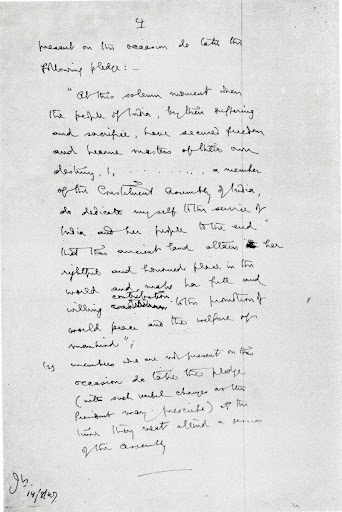 4
present on this occasion do take the
following pledge: —
"At this solemn moment when
the people of India, by their suffering
and sacrifice, have secured freedom
and become masters of their own
destiny, I, .......... , a member
of the Constituent Assembly of India,
do dedicate myself to the service of
India and her people to the end
that this ancient land attain her
rightful and honoured place in the
world and make her full and
contribution
willing to the promotion of
world peace and the welfare of
mankind";
(2) members who are not present on this
occasion do take the pledge
(with such verbal changes as the
President may prescribe) at the
time they next attend a session
of the Assembly
14/8/47